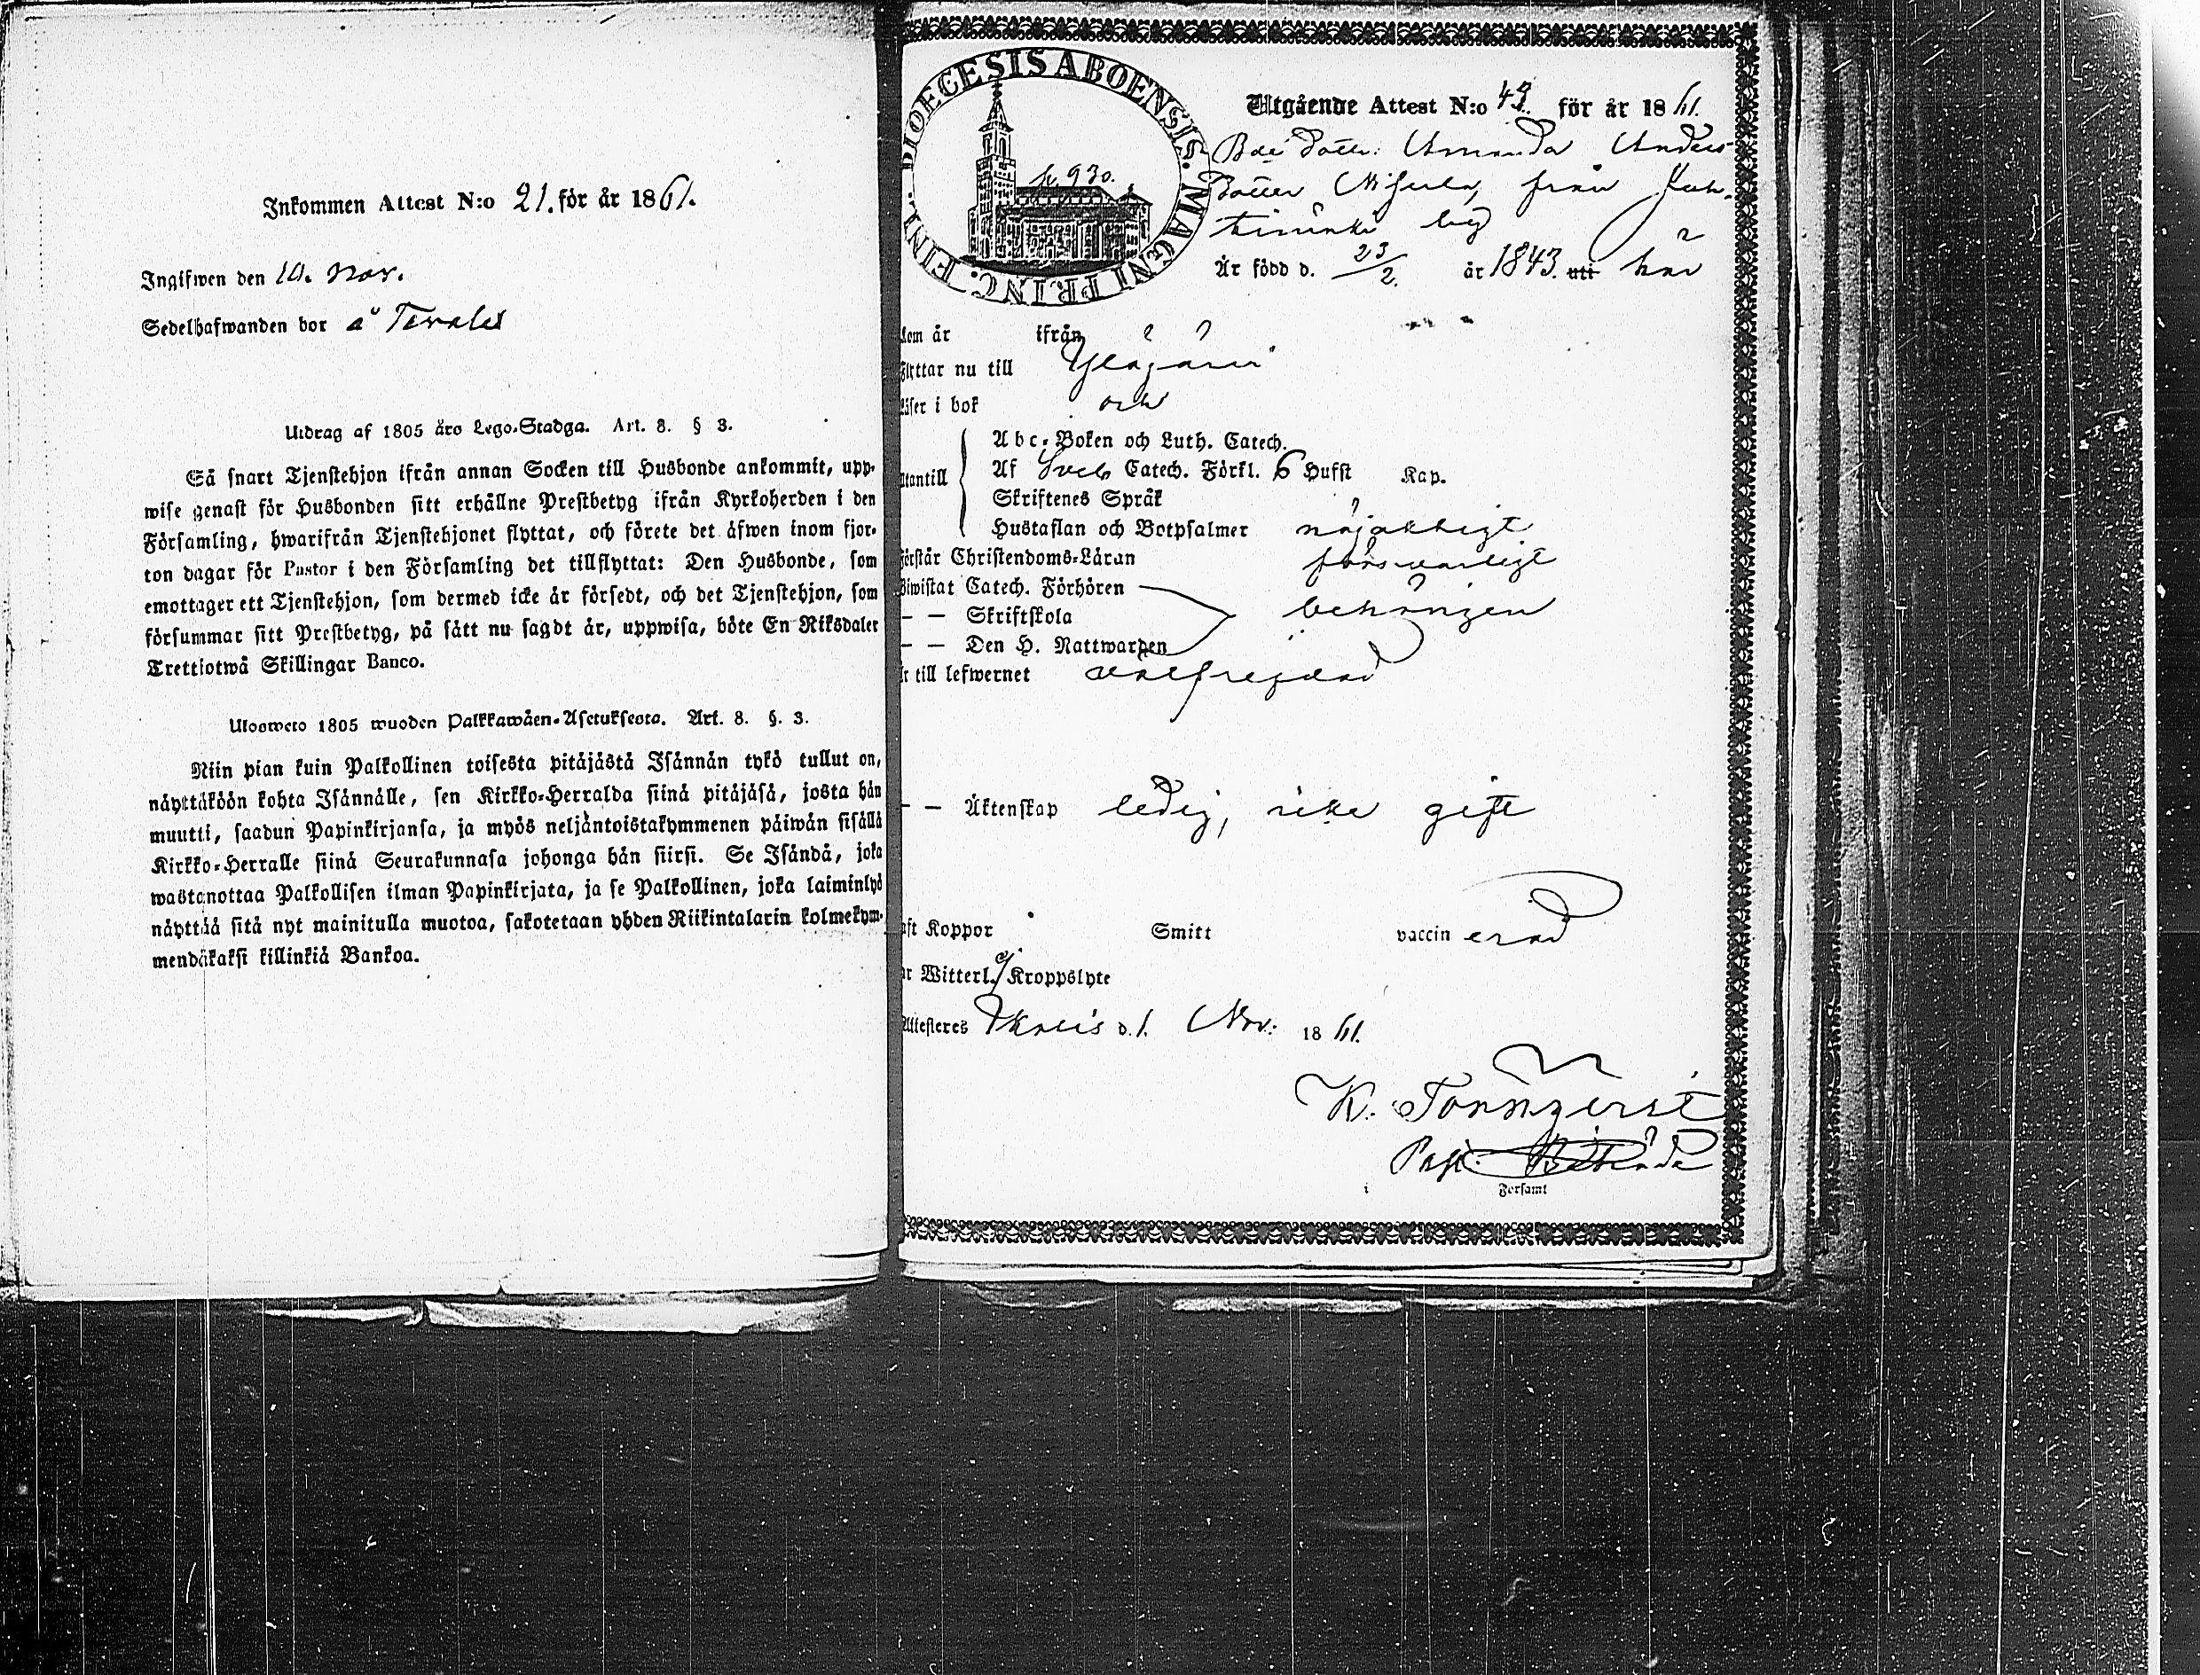 Inkommen Attest N:o 21. för år 1861.
Ingifwen den 10. Nov.
Sedelhafwanden bor å
Utdrag af 1805 års Lego-Stadga. Art. 8. § 3.
Så snart Tjenstehjon ifrån annan Socken till Husbonde ankommit, upp-
wise genast för Husbonden sitt erhållne Prestbetyg ifrån Kyrkoherden i den
Församling, hwarifrån Tjenstehjonet flyttat, och förete det äfwen inom fjor-
ton dagar för Pastor i den Församling det tillflyttat: Den Husbonde, som
emottager ett Tjenstehjon, som dermed icke är försedt, och det Tjenstehjon, som
försummar sitt Prestbetyg, på sätt nu sagdt är, uppwisa, böte En Riksdaler
Trettiotwå Skillingar Banco.
Ulosweto 1805 wuoden Palkkawäen-Asetuksesta. Art. 8. §. 3.
Niin pian kuin Palkollinen toisesta pitäjästä Isännän tykö tullut on,
näyttäköön kohta Isännälle, sen Kirkko-Herralda siinä pitäjäsä, josta hän
muutti, saadun Papinkirjansa, ja myös neljäntoistakymmenen päiwän sisällä
Kirkko-Herralle siinä Seurakunnasa johonga hän siirsi. Se Isändä, joka
wastanottaa Palkollisen ilman Papinkirjata, ja se Palkollinen, joka laiminlyö
näyttää sitä nyt mainitulla muotoa, sakotetaan yhden Riikintalarin kolmekym-
mendäkaksi killinkiä Bankoa.
DIOECESIS ABOENSIS. MAGNI PRINC. FINL.
p. 930.
Utgående Attest N:o 43. för år 1861.
Bde dottr. Amanda Anders-
dotter från
by
Är född d. 23/2. år 1843. uti här
kom år ifrån
Flyttar nu till Ylöjärvi
Läser i bok och
Utantill
Abc-Boken och Luth. Catech.
Af Sveb Catech. Förkl. 6 Hufst Kap.
Skriftenes Språk
Hustaflan och Botpsalmer nöjaktigt
Förstår Christendoms-Läran försvarligt
Biwistat Catech. Förhören
— — Skriftskola behörigen
— — Den H. Nattwarden
Är till lefwernet välfrejdad
— — Äktenskap ledig, icke gift
haft Koppor Smitt vaccin erad
har Witterl. ej Kroppslyte
Attesteres d. 1. Nov. 1861.
K.
Past.
i Forsamt